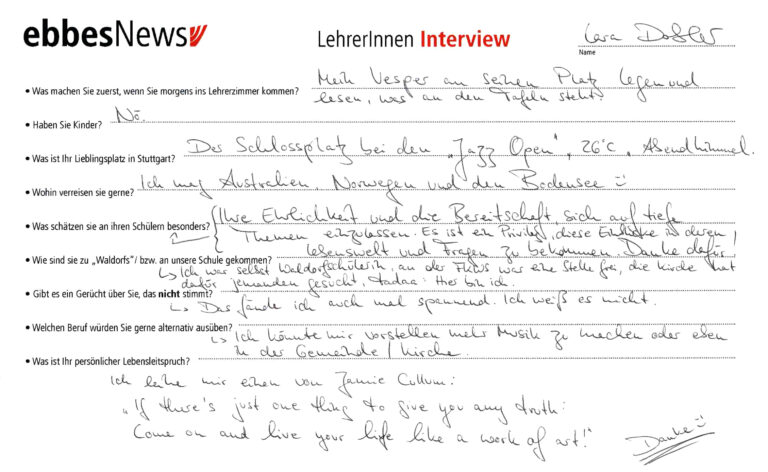 ebbesNews
LehrerInnen Interview
Lara
Name
Mein Vesper an seinen Platz legen und
• Was machen Sie zuerst, wenn Sie morgens ins Lehrerzimmer kommen?
lesen, was an den Tafeln steht.
• Haben Sie Kinder? Nö.
• Was ist Ihr Lieblingsplatz in Stuttgart? Der Schlossplatz bei den „Jazz Open", 26°C, Abendhimmel.
• Wohin verreisen sie gerne? Ich mag Australien, Norwegen und den Bodensee
• Was schätzen sie an ihren Schülern besonders? Ihre Ehrlichkeit und die Bereitschaft sich auf tiefe
Themen einzulassen. Es ist ein Privileg, diese Einblicke in deren
Lebenswelt und Fragen zu bekommen. Danke dafür!
• Wie sind sie zu „Waldorfs"/ bzw. an unsere Schule gekommen?
Ich war selbst Waldorfschülerin, an der war eine Stelle frei, die Kirche hat
dafür jemanden gesucht, tadaa: Hier bin ich.
• Gibt es ein Gerücht über Sie, das nicht stimmt?
Das fände ich auch mal spannend. Ich weiß es nicht.
• Welchen Beruf würden Sie gerne alternativ ausüben?
Ich könnte mir vorstellen mehr Musik zu machen oder eben
in der Gemeinde / Kirche.
• Was ist Ihr persönlicher Lebensleitspruch?
Ich leihe mir einen von Jamie Cullum:
„If there's just one thing to give you any truth:
Come on and live your life like a work of art!"
Danke